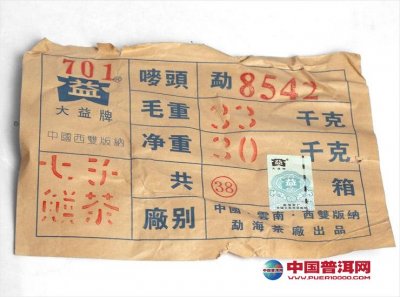 701
益®
大益牌
中國西雙版納
七子
餅茶
嘜頭 勐8542
毛重 33 千克
净重 30 千克
共 38 箱
廠别
大益牌
益
中國·雲南·西雙版納
勐海茶廠出品
中国普洱网
WWW.PUER10000.COM